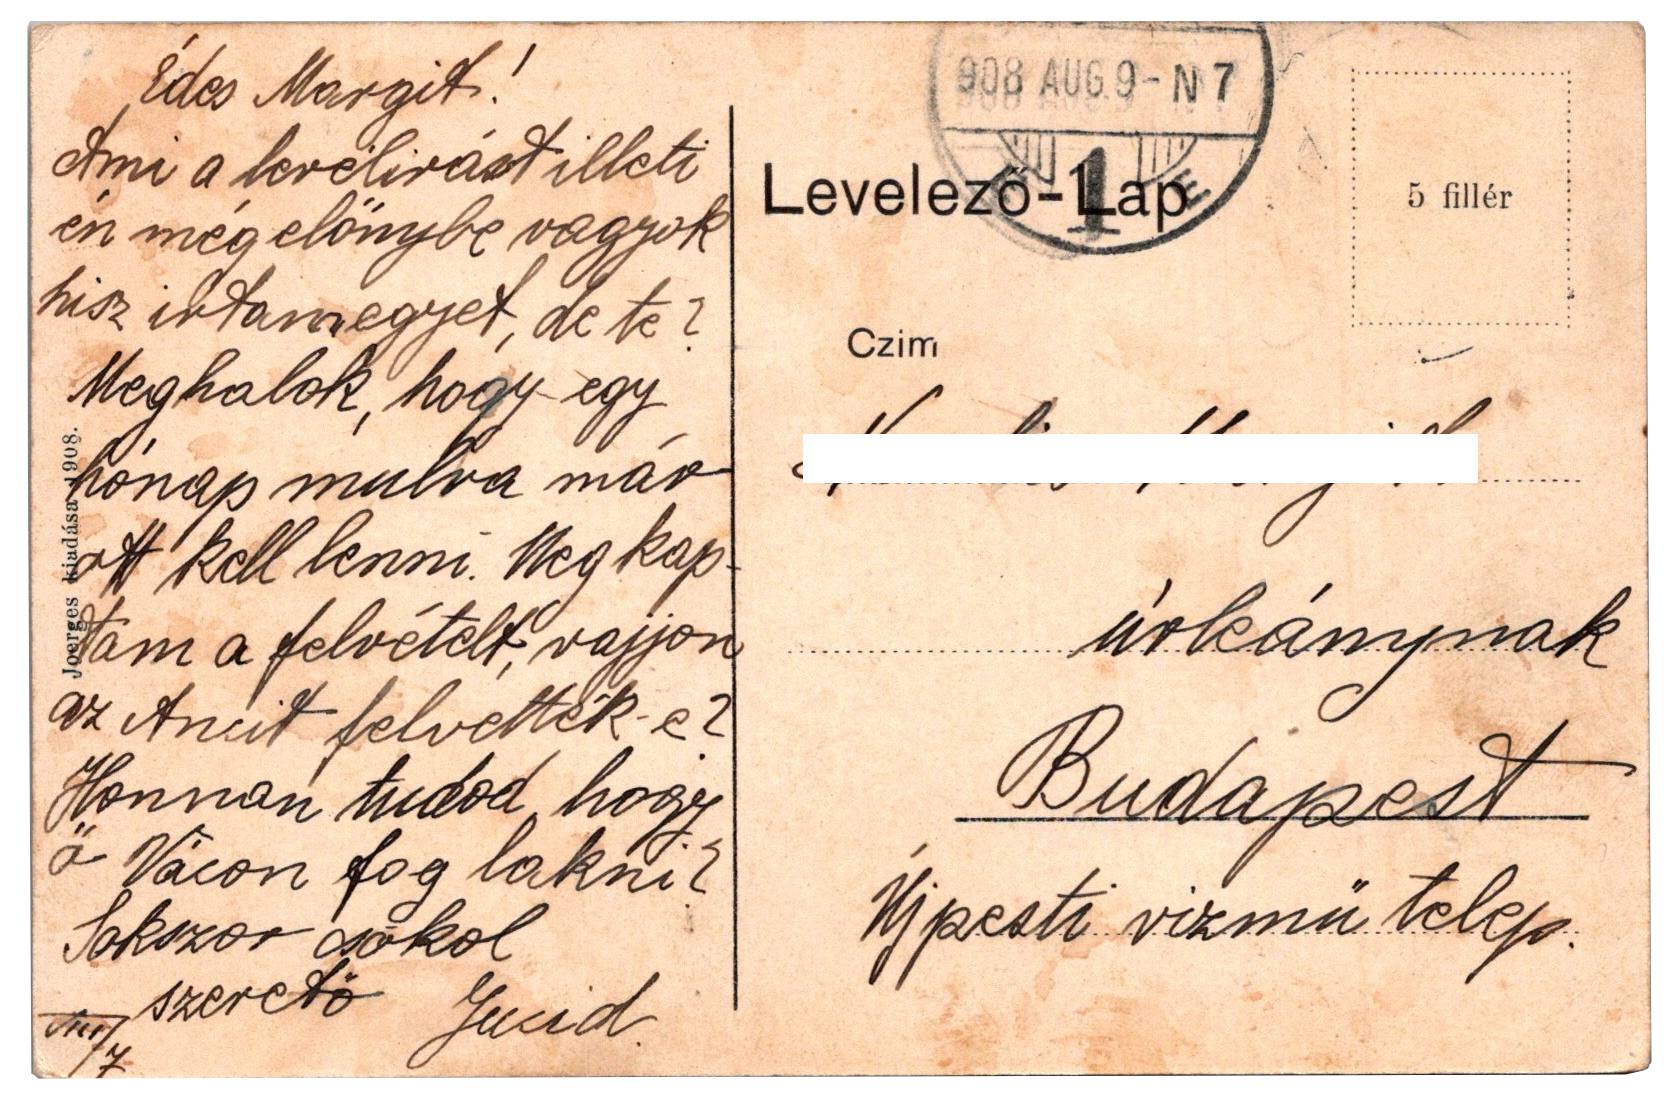 Édes Margit!
Ami a levélirást illeti
én még előnybe vagyok
hisz irtam egyet, de te?
Meghalok, hogy egy
hónap mulva már
ott kell lenni. Megkap-
tam a felvételt, vajjon
az Ancit felvették-e?
Honnan tudod, hogy
ő Vácon fog lakni?
Sokszor csókol
szerető Jucid.
VIII/7
Joerges kiadása 1908.
908 AUG. 9 - N 7
1
E
Levelező-Lap
5 fillér
Czim
úrleánynak
Budapest
Újpesti vizmű telep.